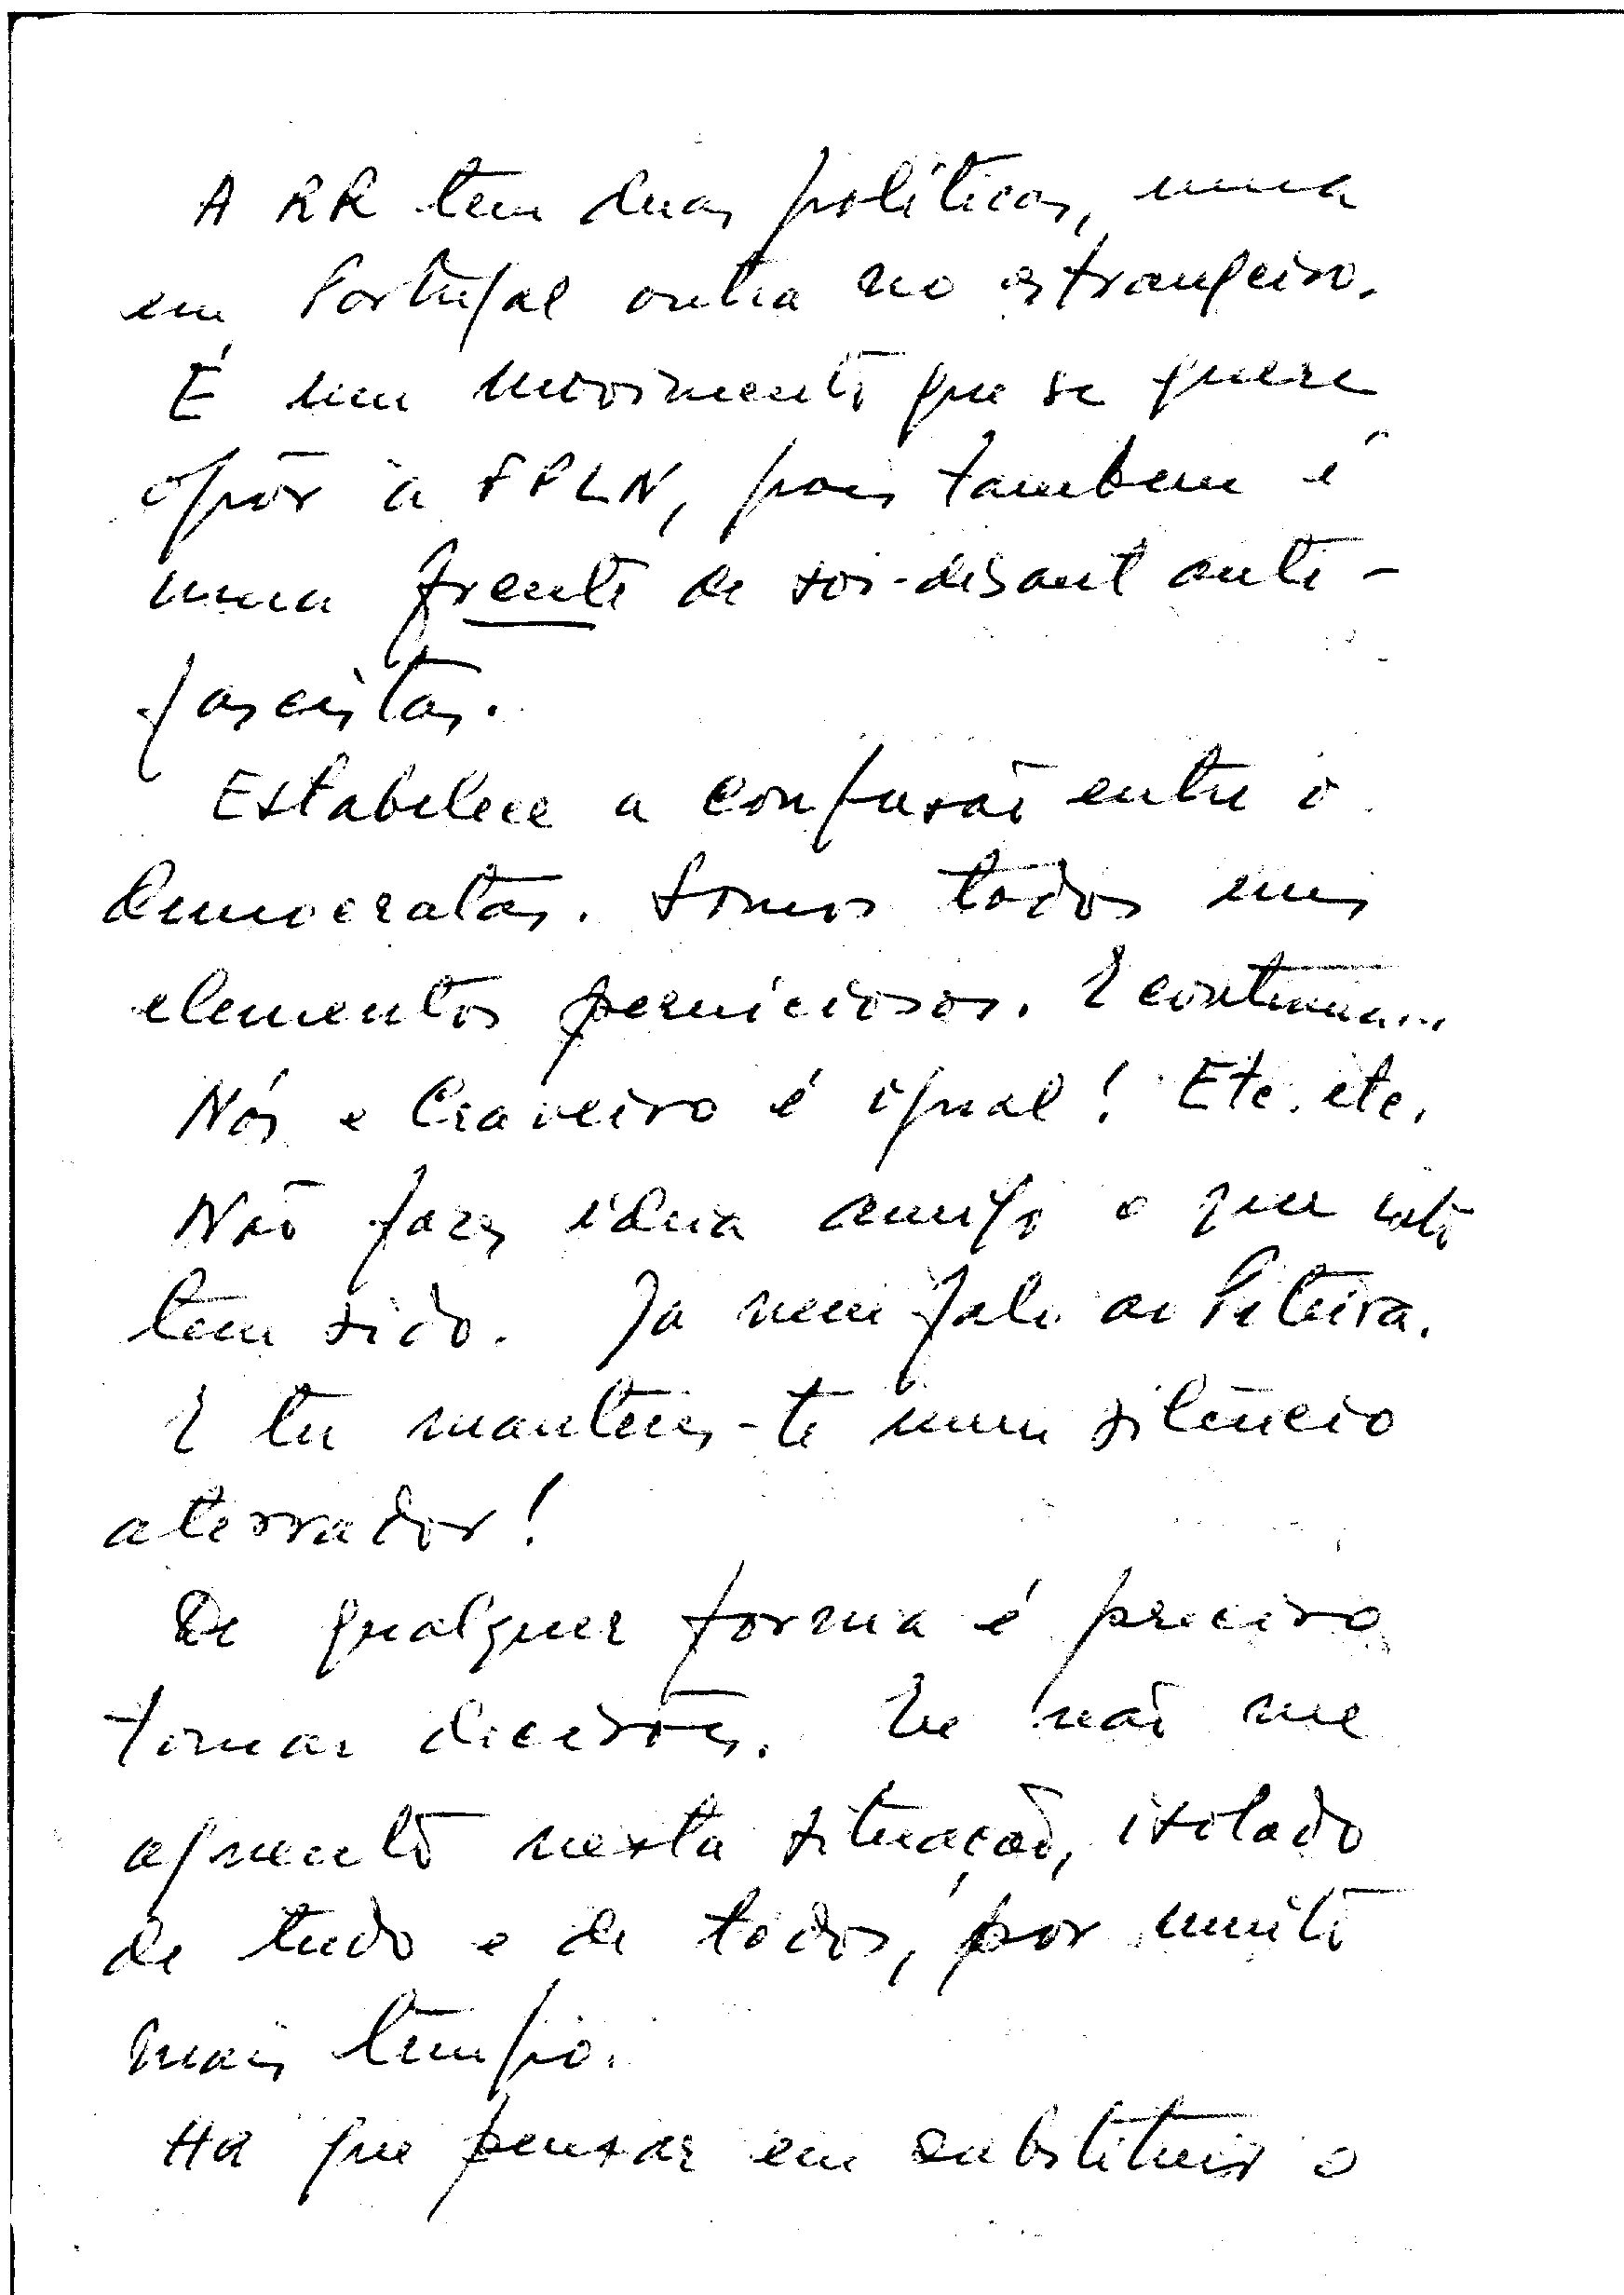 A RR tem duas políticas, uma
em Portugal outra no estrangeiro.
É um movimento que se quere
opôr à FPLN, pois tambem é
uma frente de soi-disant anti-
fascistas.
Estabelece a confusão entre o
democratas. Somos todos uns
elementos perniciosos. E continua...
Nós e Craveiro é igual! Etc. etc.
Não fazes ideia amigo o que isto
tem sido. Ja nem falo ao Piteira.
E tu mantens-te num silêncio
aterrador!
De qualquer forma é preciso
tomar decisões. Eu não me
aguento nesta situação, isolado
de tudo e de todos, por muito
mais tempo.
Ha que pensar em substituir o